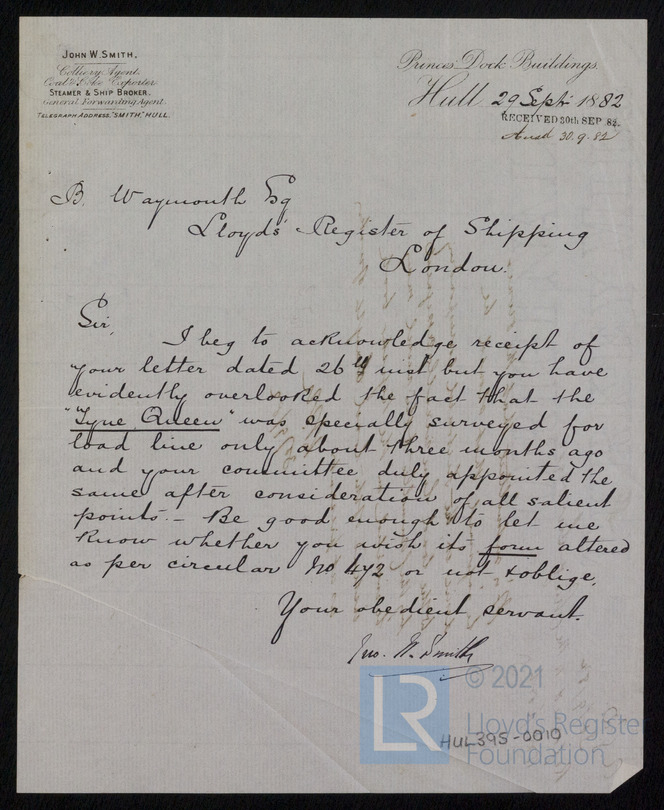 JOHN W. SMITH,
Colliery Agent.
Coal & Coke Exporter.
STEAMER & SHIP BROKER.
General Forwarding Agent.
TELEGRAPH ADDRESS, "SMITH," HULL.
Princes Dock Buildings.
Hull 29 Sept 1882
RECEIVED 30th SEP 82.
Ansd 30.9.82
B. Waymouth Esq
Lloyds Register of Shipping
London.
Sir,
I beg to acknowledge receipt of
your letter dated 26th inst but you have
evidently overlooked the fact that the
"Tyne Queen" was specially surveyed for
load line only about three months ago
and your committee duly appointed the
same after consideration of all salient
points. - Be good enough to let me
know whether you wish its form altered
as per circular No 472 or not & oblige,
Your obedient servant.
Jno. W. Smith
© 2021
LR
Lloyd's Register
Foundation
HUL395-0010